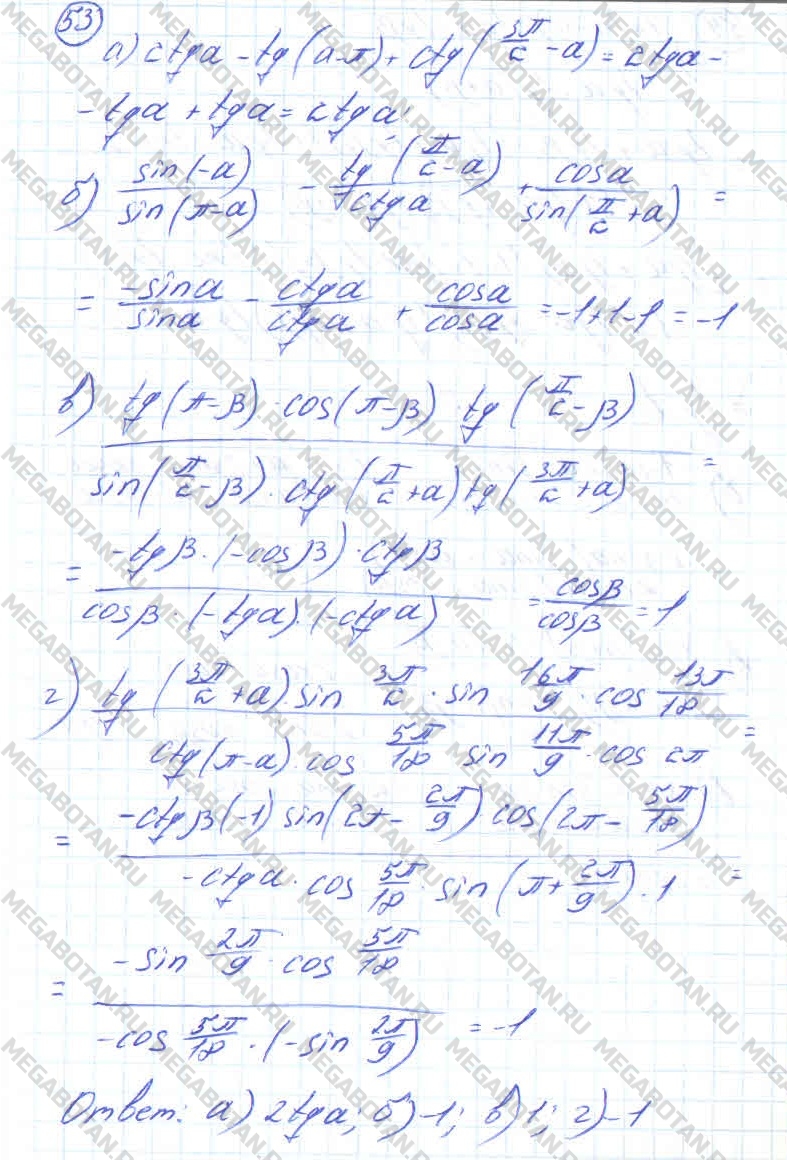 53
а) 2tga - tg(a-π) + ctg(3π/2 - a) = 2tga -
- tga + tga = 2tga
б) sin(-a)/sin(π-a) - tg(π/2 - a)/ctga + cosa/sin(π/2 + a) =
= -sina/sina - ctga/ctga + cosa/cosa = -1+1-1 = -1
в) tg(π-β) · cos(π-β) · tg(π/2 - β)
sin(π/2 - β) · ctg(π/2 + a) tg(3π/2 + a) =
= -tgβ · (-cosβ) · ctgβ
cosβ · (-tga) · (-ctga) = cosβ/cosβ = 1
г) tg(3π/2 + a) · sin 3π/2 · sin 16π/9 · cos 13π/18
ctg(π-a) · cos 5π/18 sin 11π/9 · cos 2π =
= -ctgβ(-1) sin(2π - 2π/9) · cos(2π - 5π/18)
-ctga · cos 5π/18 · sin(π + 2π/9) · 1 =
= -sin 2π/9 · cos 5π/18
-cos 5π/18 · (-sin 2π/9) = -1
Ответ: а) 2tga; б) -1; в) 1; г) -1
MEGABOTAN.RU